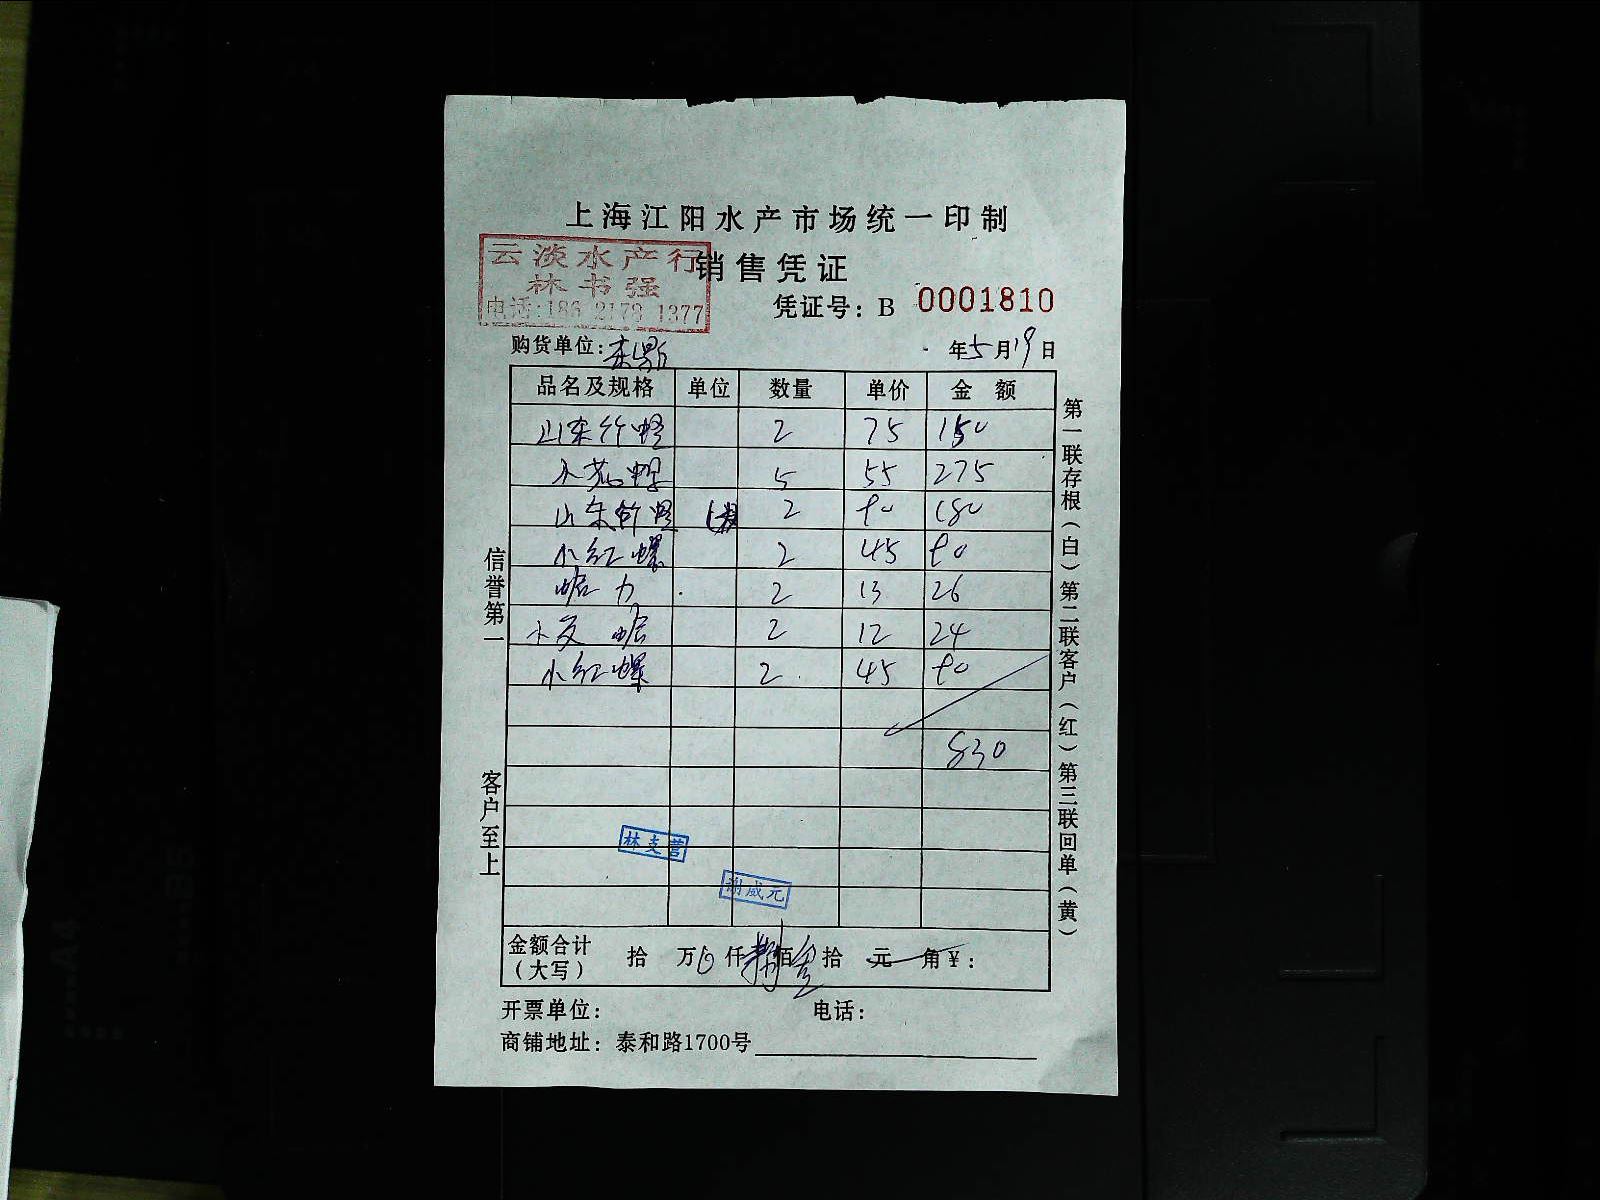 上海江阳水产市场统一印制
云淡水产行
林书强
电话:186 2178 1377
销售凭证
凭证号：B 0001810
购货单位：
年5月19日
品名及规格 单位 数量 单价 金额
山东竹蛏 2 75 150
小花螺 5 55 275
山东竹蛏 2 90 180
小红螺 2 45 90
2 13 26
2 12 24
小红螺 2 45 90
830
林支营
谢威元
金额合计（大写） 拾 万 仟 佰 拾 元 角 ¥：
开票单位： 电话：
商铺地址：泰和路1700号
信誉第一 客户至上
第一联存根（白）第二联客户（红）第三联回单（黄）